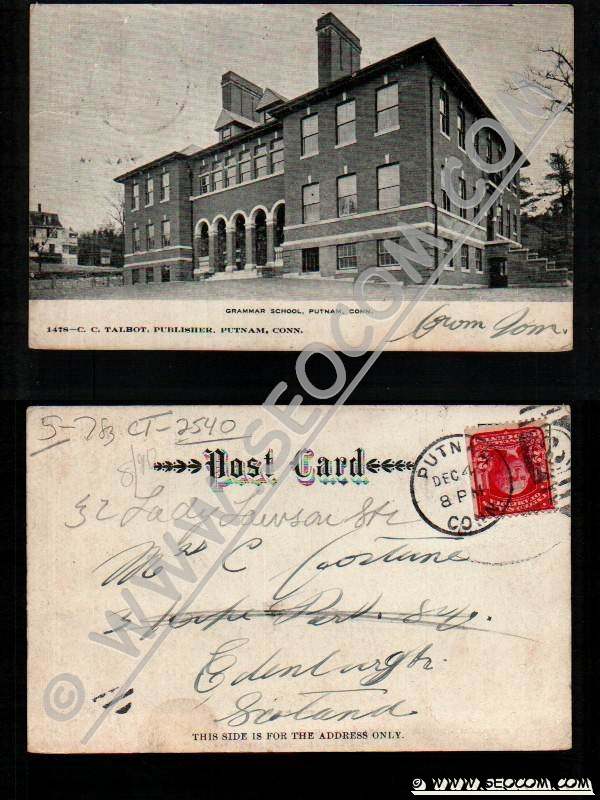 GRAMMAR SCHOOL, PUTNAM, CONN.
1478—C. C. TALBOT, PUBLISHER, PUTNAM, CONN.
From Tom.
© WWW.SEOCOM.COM
5-783 CT-2540
Post Card
PUTNAM
DEC 4
8 PM
CONN.
32 Lady Lawson Str
Mrs C
Edenburgh
Scotland
THIS SIDE IS FOR THE ADDRESS ONLY.
© WWW.SEOCOM.COM
© WWW.SEOCOM.COM